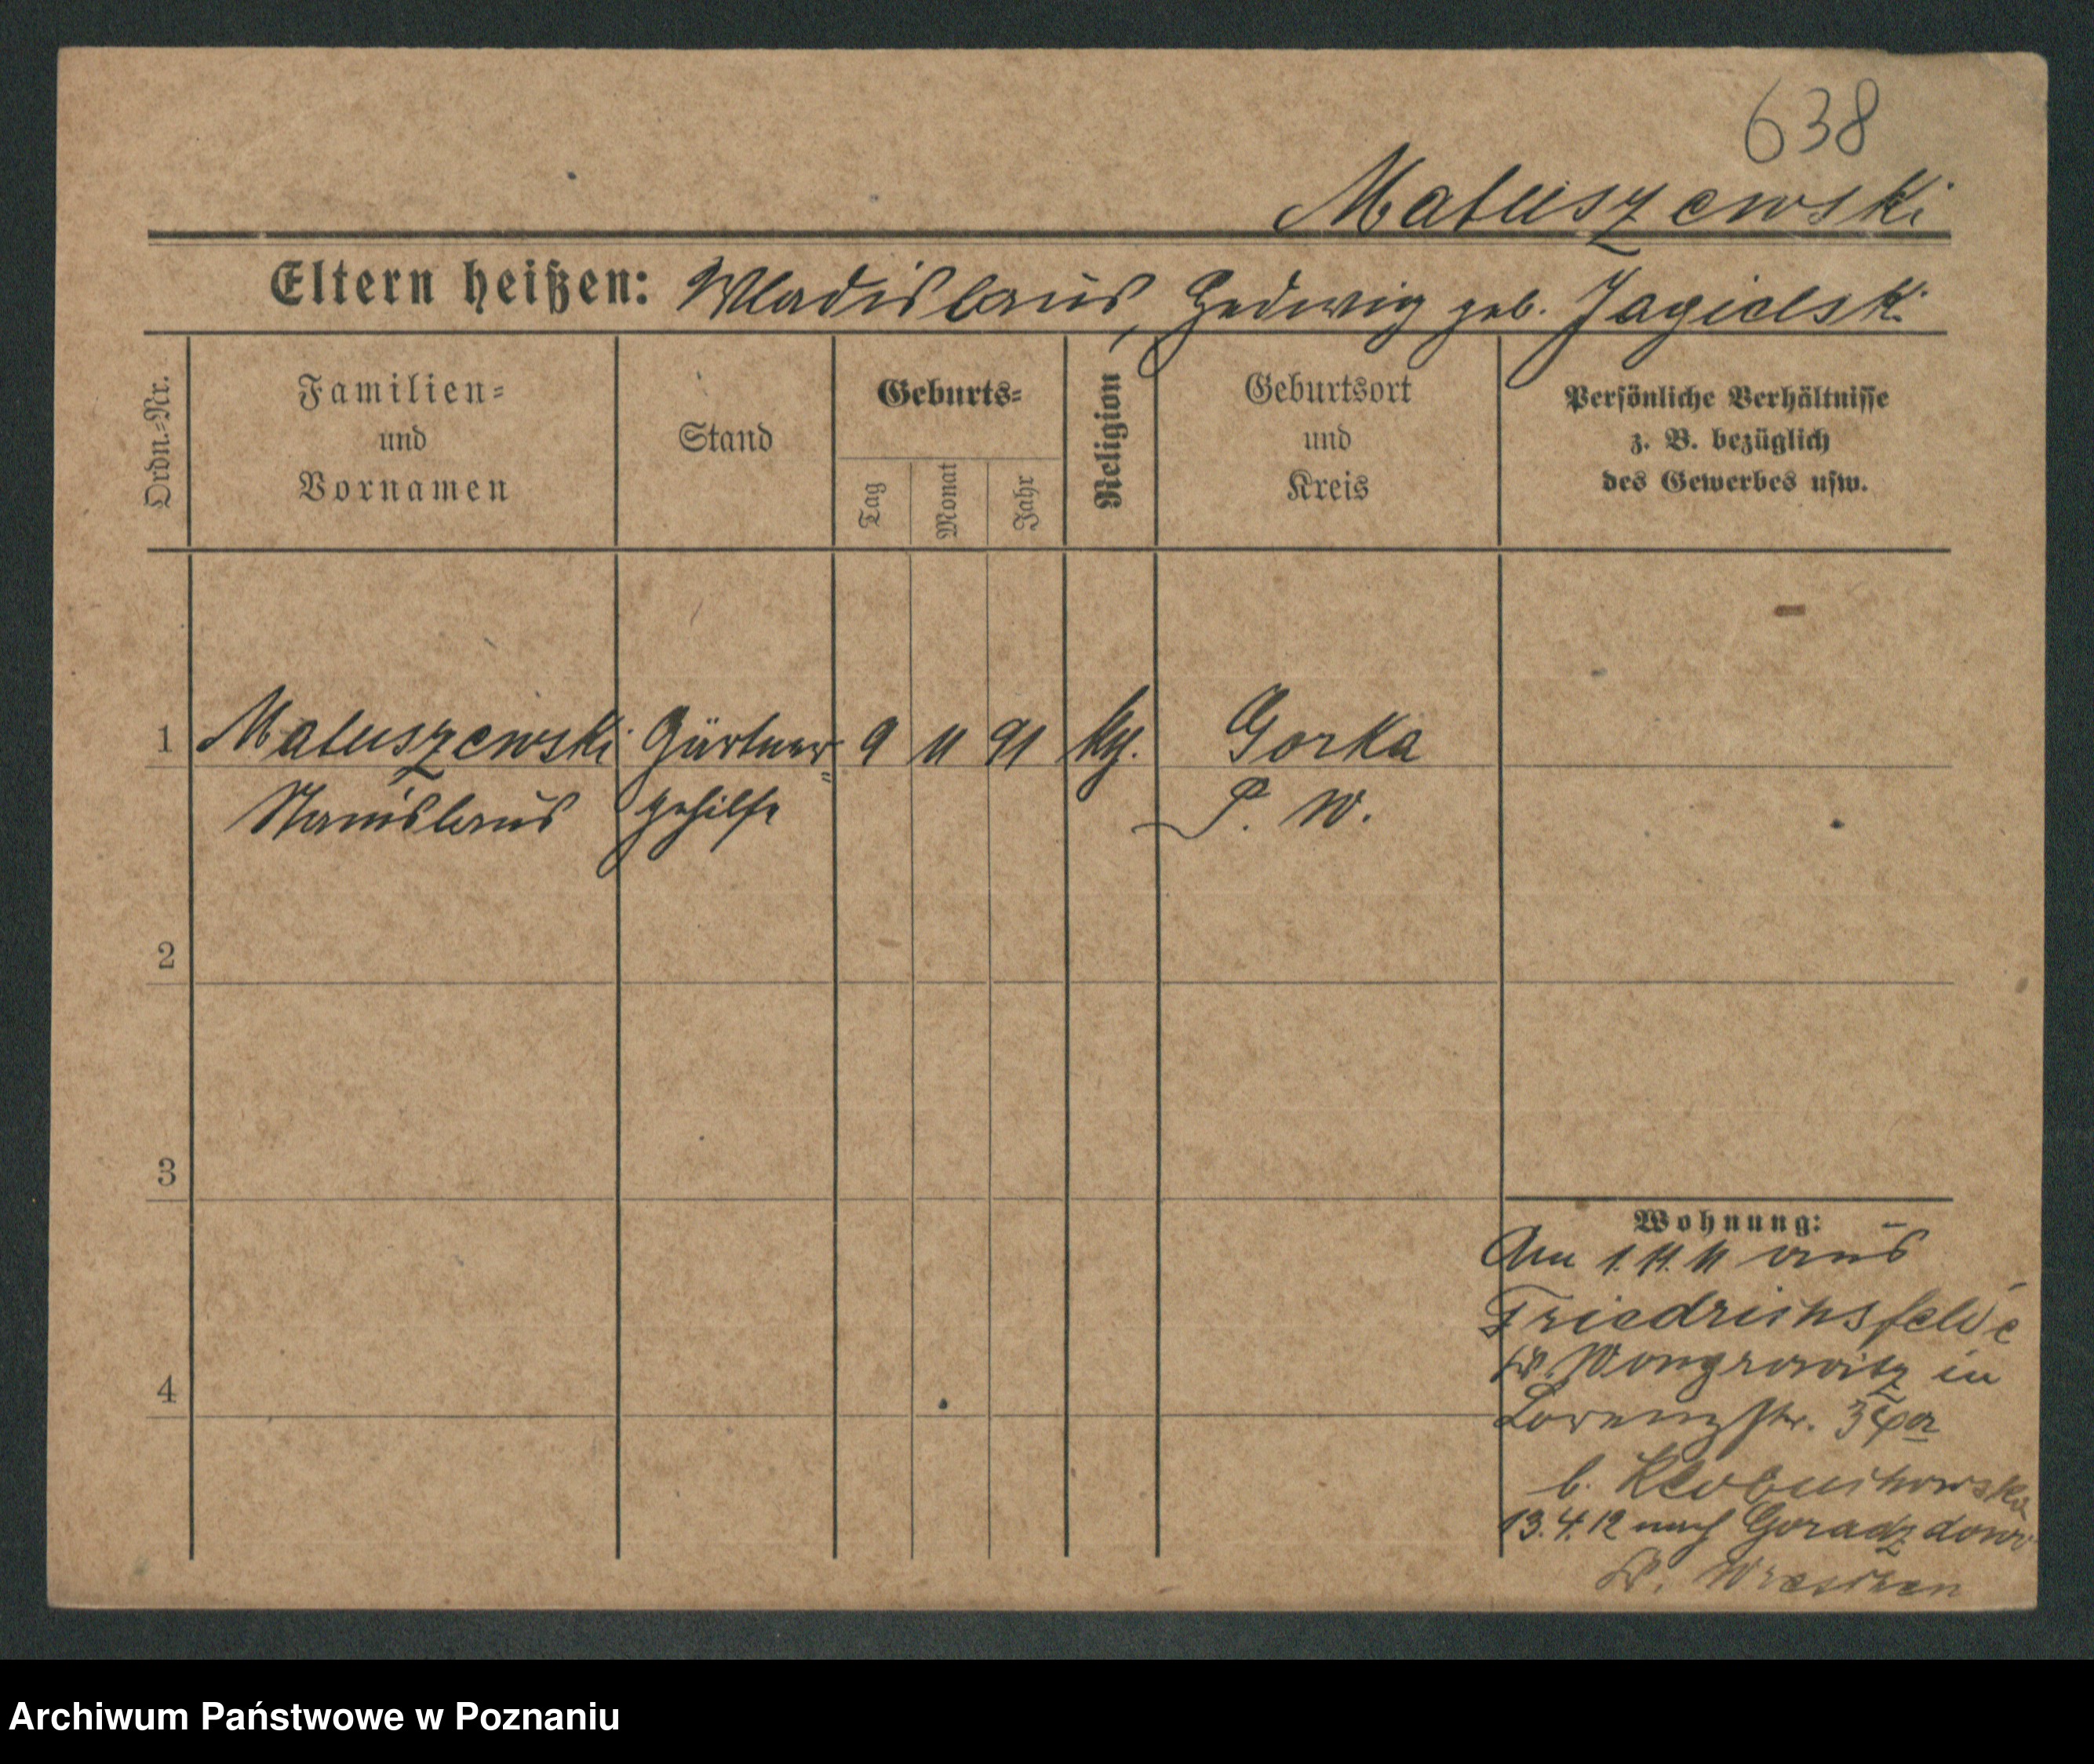 638
Matuszewski
Eltern heißen: Wladislaus, Hedwig geb. Jagielski
Ordn.-Nr.
Familien=
und
Vornamen
Stand
Geburts=
Tag
Monat
Jahr
Religion
Geburtsort
und
Kreis
Persönliche Verhältnisse
z. B. bezüglich
des Gewerbes usw.
1 Matuszewski Gärtner= 9 11 91 Gorka
Stanislaus gehilfe P. W.
2
3
4
Wohnung:
Am 1. 11. 11 aus
Friedrichsfelde
Kr. Wongrowitz in
Lorenzstr.
b.
13. 4. 12 nach Goradzdowo
Kr. Wreschen
Archiwum Państwowe w Poznaniu